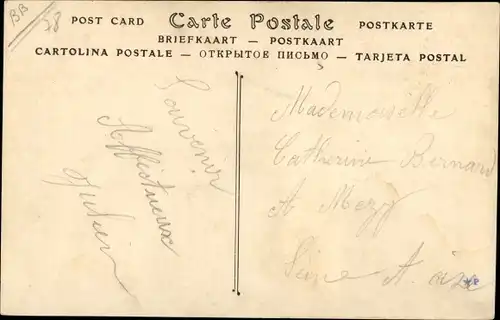 BB
78
POST CARD Carte Postale POSTKARTE
BRIEFKAART — POSTKAART
CARTOLINA POSTALE — ОТКРЫТОЕ ПИСЬМО — TARJETA POSTAL
Souvenir
Affectueux
Mademoiselle
Catherine Bernard
A Mezy
Seine A. oise